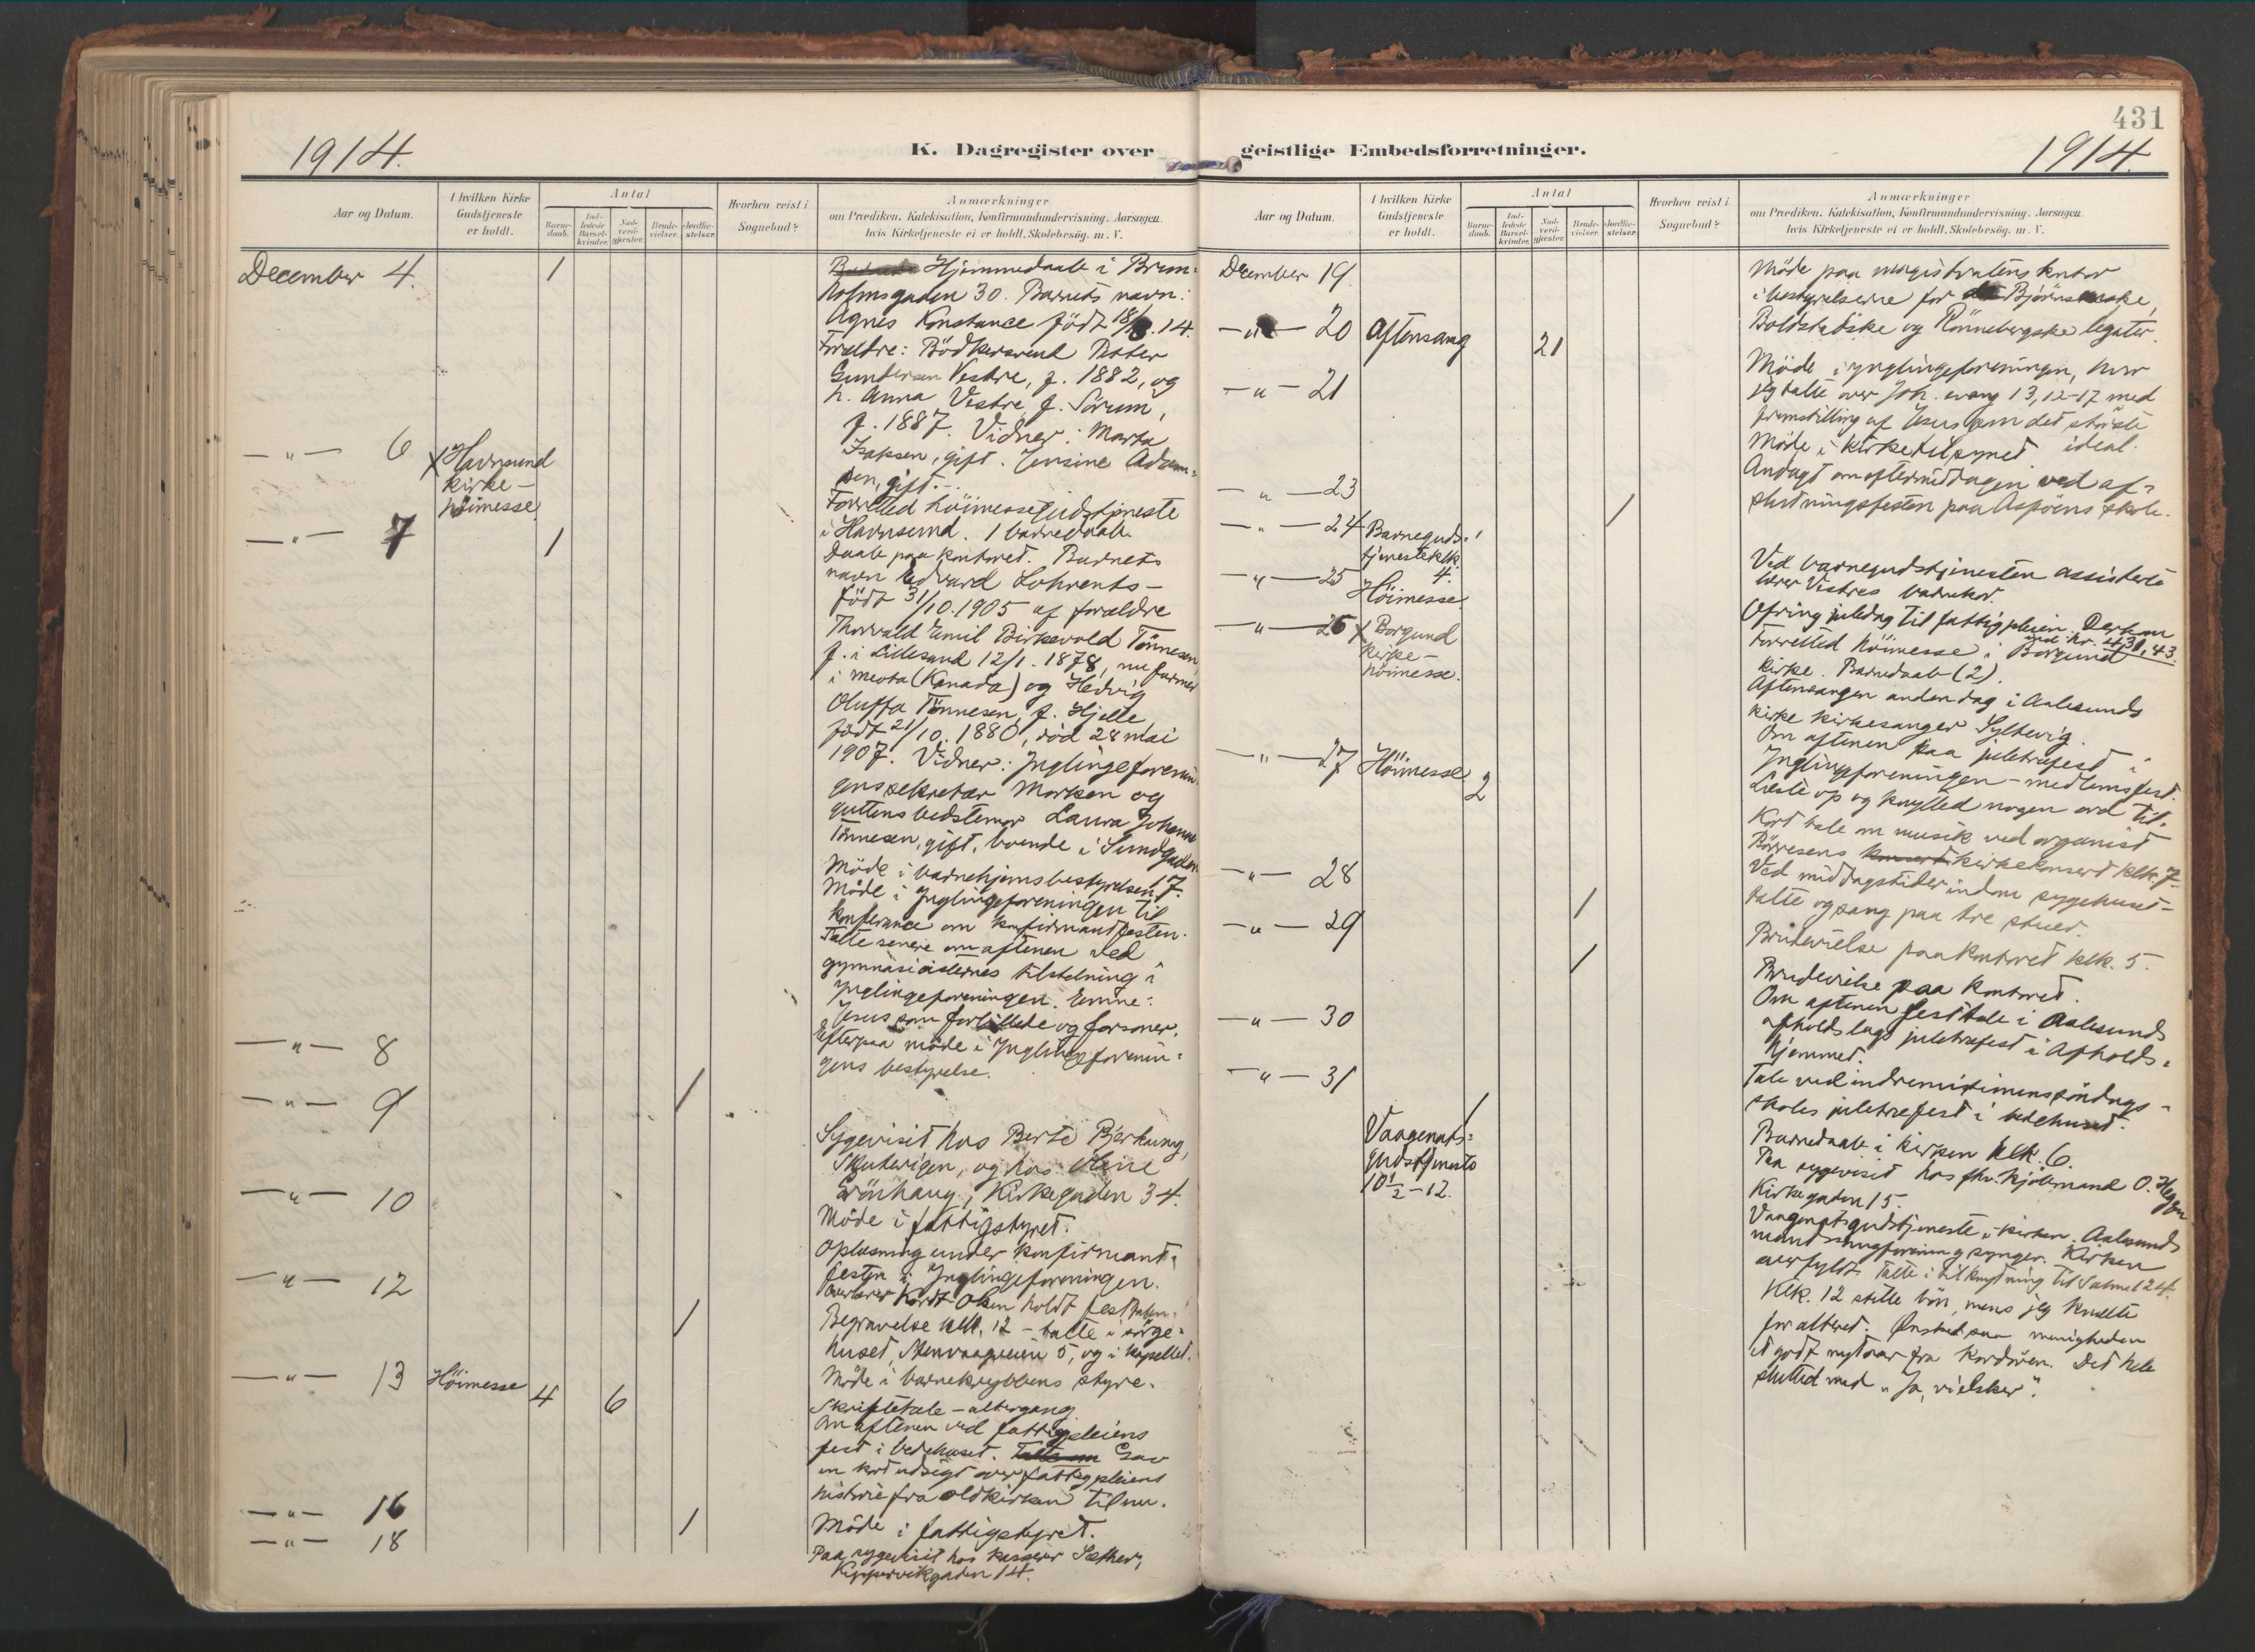 431
1914.
K. Dagregister over
geistlige Embedsforretninger.
1914.
Aar og Datum.
I hvilken Kirke
Gudstjeneste
er holdt.
Antal
Barne-
daab.
Ind-
ledede
Barsel-
kvinder.
Nad-
verd-
gjester.
Brude-
vielser.
Jordfæ-
stelser.
Hvorhen reist i
Sognebud?
Anmærkninger
om Prædiken, Katekisation, Konfirmandundervisning, Aarsagen,
hvis Kirketjeneste ei er holdt, Skolebesög, m. V.
December 4.
1
Hjemmedaab i Brun-
holmsgaden 30. Barnets navn:
Agnes Konstance född 18/ .14.
Forældre: Bödkersvend Petter
Gundersen Vestre, f. 1882, og
h. Anna Vestre f. Sörum,
f. 1887. Vidner: Marta
Isaksen, gift. Jensine Adam-
sen, gift.
-"- 6
x Havnsund
kirke-
höimesse
Forretted höimessegudstjeneste
i Havnsund. 1 barnedaab.
-"- 7
1
Daab paa kontoret. Barnets
navn Edvard Lohrents-
födt 31/10.1905 af forældre
Thorvald Emil Birkevold Tönnesen
f. i Lillesand 12/1.1878, nu farmer
i Meota (Kanada) og Hedvig
Oluffa Tönnesen, f. Hjelle,
födt 21/10.1880, död 28 mai
1907. Vidner: Ynglingeforenin-
gens sekretær Morken og
guttens bedstemor Laura Johanne
Tönnesen, gift, boende i Sundgaden
17.
Möde i barnehjemsbestyrelsen.
Möde i Ynglingeforeningen til
konferance om konfirmantfesten.
Talte senere om aftenen ved
gymnasiasternes tilstelning i
Ynglingeforeningen. Emne:
Jesus som forbillede og forsoner.
-"- 8
Efterpaa möde i Ynglingeforenin-
gens bestyrelse.
-"- 9
1
Sygevisit hos Berte Bjerkung,
Skutevigen, og hos Oline
Grönhaug, Kirkegaden 34.
-"- 10
Möde i fattigstyret.
Oplæsning under konfirmant-
festen i Ynglingeforeningen.
Overlærer Kordt Olsen holdt festtalen.
-"- 12
1
Begravelse klk. 12 - talte i sörge-
huset, Stenvaagveien 5, og i kapellet.
Möde i barnekrybbens styre.
-"- 13
Höimesse
4
6
Skriftetale - altergang
Om aftenen ved fattigpleiens
fest i bedehuset. Talte om Gav
en kort udsigt over fattigpleiens
historie fra oldkirken til nu.
-"- 16
1
Möde i fattigstyret.
-"- 18
Paa sygevisit hos kasserer Sæther,
Kippervikgaden 14.
Aar og Datum.
I hvilken Kirke
Gudstjeneste
er holdt.
Antal
Barne-
daab.
Ind-
ledede
Barsel-
kvinder.
Nad-
verd-
gjester.
Brude-
vielser.
Jordfæ-
stelser.
Hvorhen reist i
Sognebud?
Anmærkninger
om Prædiken, Katekisation, Konfirmandundervisning, Aarsagen,
hvis Kirketjeneste ei er holdt, Skolebesög, m. V.
December 19.
Möde paa magistratens kontor
i bestyrelserne for Björnsonske,
Boldstadske og Rönnebergske legater.
-"- 20
Aftensang
21
Möde i ynglingeforeningen, hvor
jeg talte over Joh. evang 13,12-17 med
fremstilling af Jesus som det störste
ideal.
-"- 21
Möde i kirketilsynet
Andagt om eftermiddagen ved af-
slutningsfesten paa Aspöens skole.
-"- 23
-"- 24
Barneguds-
tjeneste klk.
4.
1
Ved barnegudstjenesten assisterte
lærer Vestres barnekor.
-"- 25
Höimesse.
Ofring juledag til fattigpleien. Der kom
ind kr. 431,43.
-"- 26
x Borgund
kirke-
höimesse.
Forretted höimesse i Borgund
kirke. Barnedaab (2).
Aftensangen anden dag i Aalesunds
kirke kirkesanger Syltevig.
Om aftenen paa juletræfest i
Ynglingeforeningen - medlemsfest.
Læste op og knytted nogen ord til.
-"- 27
Höimesse
2
Kort tale om musik ved organist
Börresens konsert kirkekonsert klk. 7.
-"- 28
1
Ved middagstider indom sygehuset-
talte og sang paa tre stuer.
Brudevielse paa kontoret klk. 5.
-"- 29
1
Brudevielse paa kontoret.
Om aftenen festtale i Aalesunds
afholdslags juletræfest i Afholds-
hjemmet.
-"- 30
Tale ved indremissionens söndags-
skoles juletræfest i bedehuset.
-"- 31
1
Vaagenats-
gudstjeneste
10½-12.
Barnedaab i kirken klk. 6.
Paa sygevisit hos fhv. hjulmand O. Heggen
Kirkegaden 15.
Vaagenatsgudstjeneste i kirken. Aalesunds
mandssangforening synger. Kirken
overfyldt. Talte i tilknytning til Salme 124.
Klk. 12 stille bön, mens jeg knælte
for alteret. Ønsket saa menigheden
et godt nytaar fra kordören. Det hele
slutted med "Ja, vi elsker".